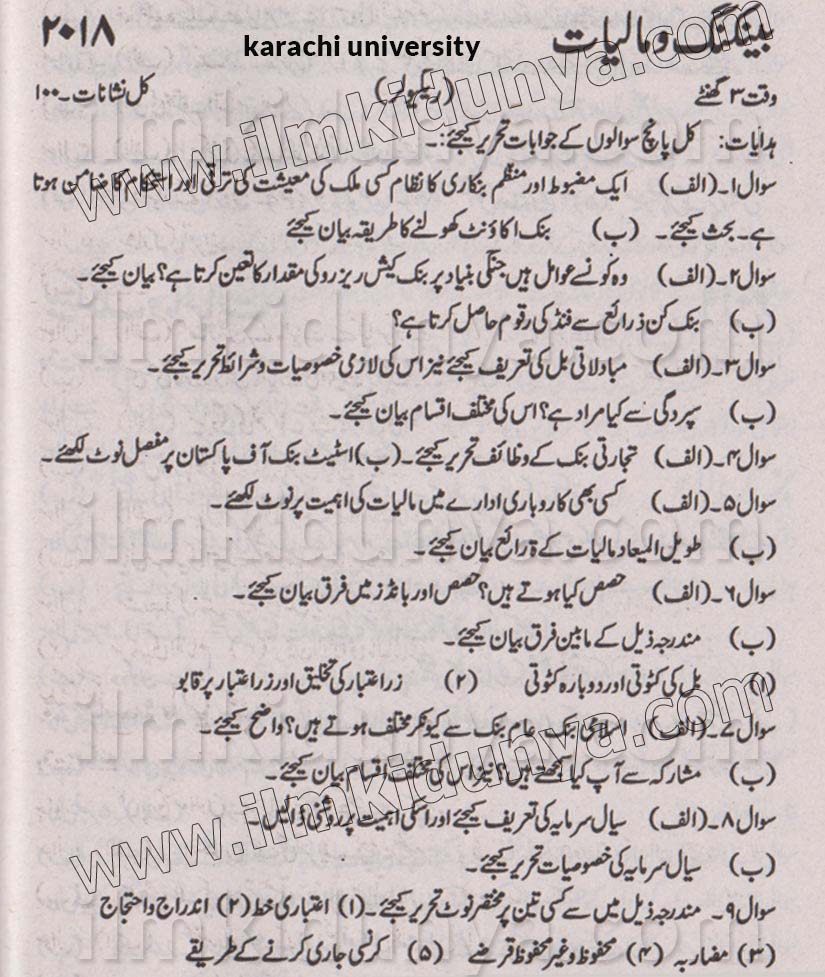 بینکنگ و مالیات karachi university ۲۰۱۸
وقت ۳ گھنٹے (ریگیولر) کل نشانات۔۱۰۰
ہدایات: کل پانچ سوالوں کے جوابات تحریر کیجئے:۔
سوال۱۔(الف) ایک مضبوط اور منظم بنکاری کا نظام کسی ملک کی معیشت کی ترقی اور استحکام کا ضامن ہوتا
ہے۔ بحث کیجئے۔ (ب) بنک اکاؤنٹ کھولنے کا طریقہ بیان کیجئے
سوال۲۔(الف) وہ کونسے عوامل ہیں جنکی بنیاد پر بنک کیش ریزرو کی مقدار کا تعین کرتا ہے؟ بیان کیجئے۔
(ب) بنک کن ذرائع سے فنڈ کی رقوم حاصل کرتا ہے؟
سوال۳۔(الف) مبادلاتی بل کی تعریف کیجئے نیز اس کی لازمی خصوصیات و شرائط تحریر کیجئے۔
(ب) سپردگی سے کیا مراد ہے؟ اس کی مختلف اقسام بیان کیجئے۔
سوال۴۔(الف) تجارتی بنک کے وظائف تحریر کیجئے۔(ب) اسٹیٹ بنک آف پاکستان پر مفصل نوٹ لکھئے۔
سوال۵۔(الف) کسی بھی کاروباری ادارے میں مالیات کی اہمیت پر نوٹ لکھئے۔
(ب) طویل المیعاد مالیات کے ذرائع بیان کیجئے۔
سوال۶۔(الف) حصص کیا ہوتے ہیں؟ حصص اور بانڈز میں فرق بیان کیجئے۔
(ب) مندرجہ ذیل کے مابین فرق بیان کیجئے۔
(۱) بل کی کٹوتی اور دوبارہ کٹوتی (۲) زر اعتبار کی تخلیق اور زر اعتبار پر قابو
سوال۷۔(الف) اسلامی بنک عام بنک سے کیونکر مختلف ہوتے ہیں؟ واضح کیجئے۔
(ب) مشارکہ سے آپ کیا سمجھتے ہیں؟ نیز اس کی مختلف اقسام بیان کیجئے۔
سوال۸۔(الف) سیال سرمایہ کی تعریف کیجئے اور اسکی اہمیت پر روشنی ڈالیں۔
(ب) سیال سرمایہ کی خصوصیات تحریر کیجئے۔
سوال۹۔ مندرجہ ذیل میں سے کسی تین پر مختصر نوٹ تحریر کیجئے۔(۱) اعتباری خط (۲) اندراج و احتجاج
(۳) مضاربہ (۴) محفوظ و غیر محفوظ قرضے (۵) کرنسی جاری کرنے کے طریقے
www.ilmkidunya.com
www.ilmkidunya.com
ilmkidunya.com
ilmkidunya.com
ilmkidunya.com
ilmkidunya.com